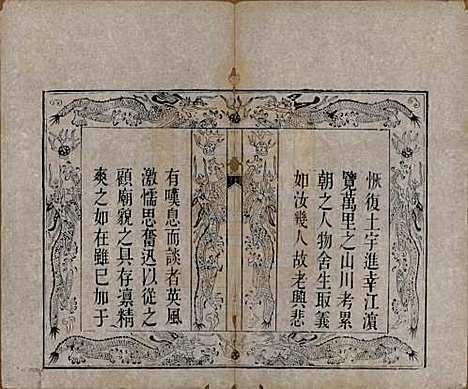 恢復土宇進幸江濵
覽萬里之山川考累
朝之人物舍生取義
如汝幾人故老興悲
有嘆息而談者英風
激懦思奮迅以從之
顧廟貌之具存凛精
爽之如在雖已加于